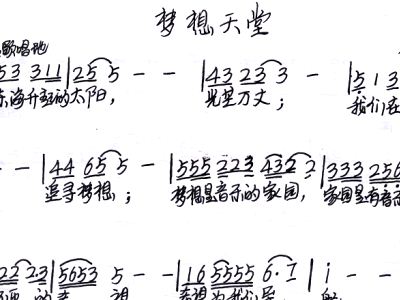 梦想天堂
歌唱地
53 311 | 25 5 - - | 43 23 3 - | 5 1 3
东海升起的太阳， 光芒万丈； 我们在
- - | 44 65 5 - | 555 223 432 2 | 333 256
追寻梦想； 梦想是音乐的家园， 家园是有音
22 23 | 5653 5 - - | 16 5555 6·1 | i - -
的 我们